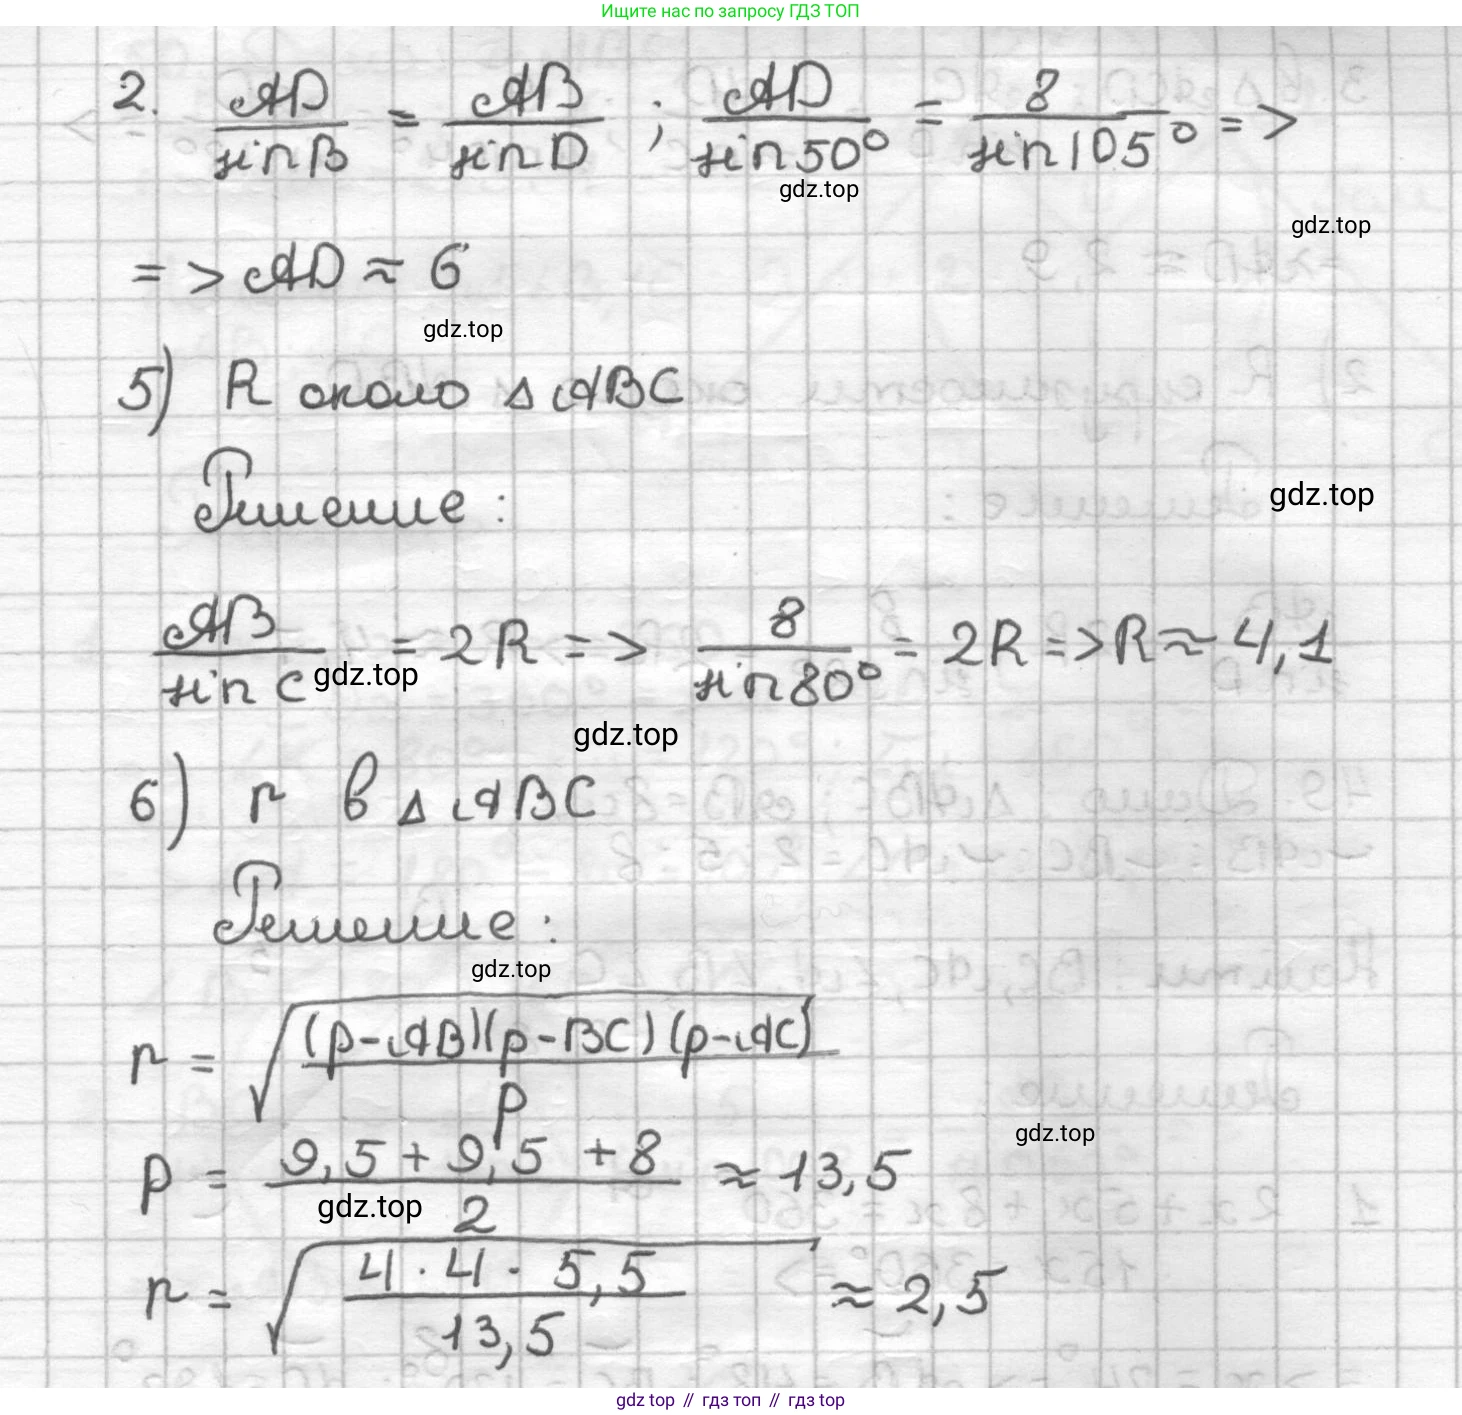 Ищите нас по запросу ГДЗ ТОП
2. AD/sin B = AB/sin D ; AD/sin 50° = 8/sin 105° =>
gdz.top
gdz.top
=> AD ≈ 6
gdz.top
5) R около △ABC
Решение:
gdz.top
AB/sin C = 2R => 8/sin 80° = 2R => R ≈ 4,1
gdz.top
gdz.top
6) r в △ABC
Решение:
gdz.top
r = √((p-AB)(p-BC)(p-AC)/p)
gdz.top
p = (9,5 + 9,5 + 8)/2 ≈ 13,5
gdz.top
r = √(4 · 4 · 5,5/13,5) ≈ 2,5
gdz top // гдз топ // gdz top